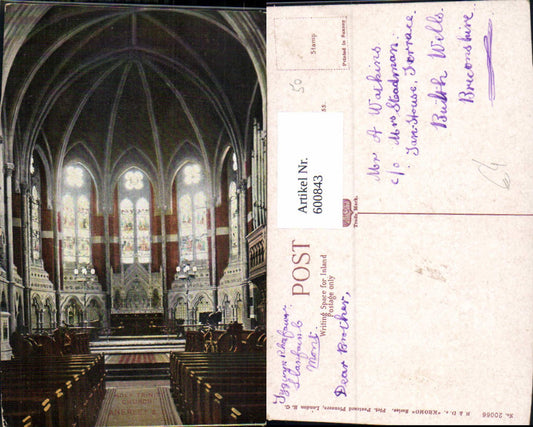 HOLY TRINITY
CHURCH
Stamp
Printed in Saxony
50
Mr A Watkins
c/o Mrs Steadman
Tan-House, Terrace
Builth Wells
Breconshire
64
Artikel Nr.
600843
Trade Mark.
POST
Writing Space for Inland
Postage only
Llanfair
Mont.
Dear Brother,
No. 20066 "KROMO" Series. Pict. Postcard Printers, London E. C.